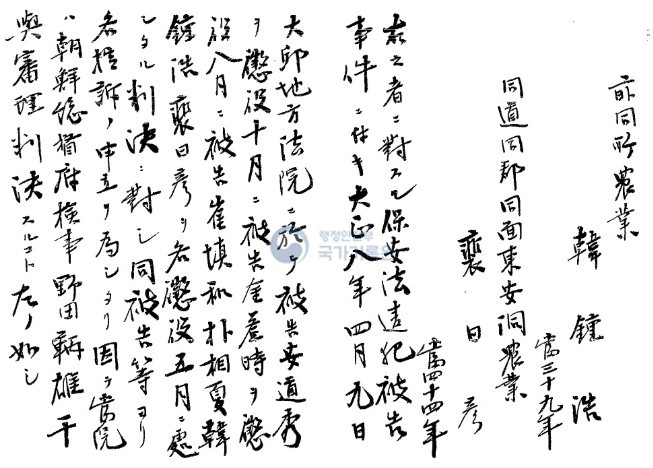 前同所農業
韓鍾浩
當三十九年
同道同郡同面東安洞農業
裵日彦
當四十四年
右之者ニ對スル保安法違犯被告
事件ニ付キ大正八年四月九日
大邱地方法院ニ於テ被告安道秀
ヲ懲役十月ニ被告金養時ヲ懲
役八月ニ被告崔填和朴相夏韓
鍾浩裵日彦ヲ各懲役五月ニ處
シタル判決ニ對シ同被告等ヨリ
各控訴ノ申立ヲ為シタリ因テ當院
ハ朝鮮総督府検事野田鞆雄干
與審理判決スルコト左ノ如シ
행정안전부
국가기록원